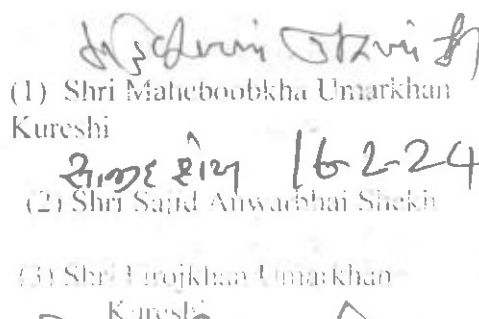 (1) Shri Maheboobkha Umarkhan
Kureshi
સાજીદ શેખ 16-2-24
(2) Shri Sajid Anwarbhai Shekh
(3) Shri Firojkhan Umarkhan
Kureshi